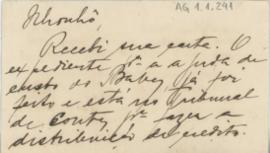 AG 1.1.241
Nhonhô,
Recebi sua carta. O
expediente pª a ajuda de
custo do Baby, já foi
feito e está no Tribunal
de Contas pª fazer a
distribuição do credito.